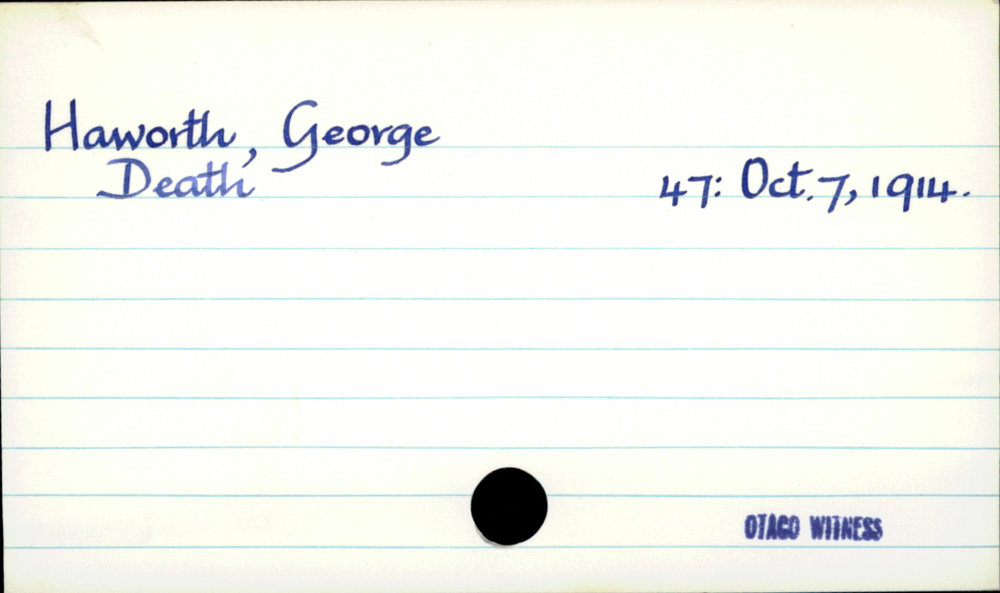 Haworth, George
Death 47: Oct. 7, 1914.
OTAGO WITNESS